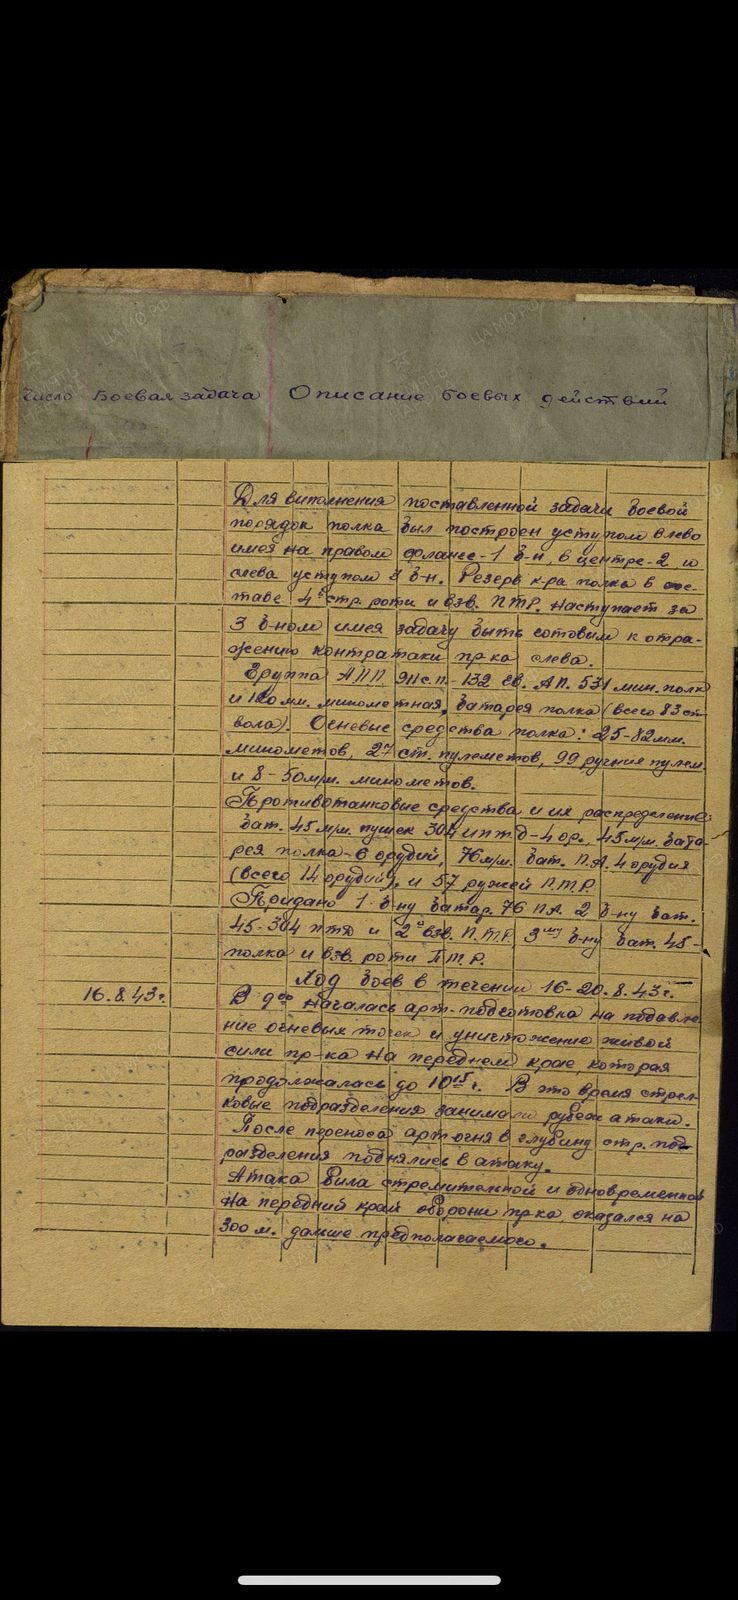 Число Боевая задача Описание боевых действий
Для виполнения поставленной задачи боевой
порядок полка был построен уступом влево
имея на правом фланге-1 б-н, в центре-2 и
слева уступом 3 б-н. Резерв к-ра полка в сос-
таве 4й стр. роти и взв. ПТР. наступает за
3 б-ном имея задачу быть готовим к отра-
жению контратаки пр-ка слева.
Группа АПП 911 с.п.- 132 Гв. АП. 531 мин. полк
и 120 мм. минометная, батарея полка (всего 83 ст-
вола). Огневые средства полка: 25-82 мм.
минометов, 27 ст. пулеметов, 99 ручних пулем.
и 8-50 м/м. минометов.
Противотанковые средства и их распределение:
бат. 45 м/м. пушек 304 иптд-4 ор., 45 м/м. бата-
рея полка-6 орудий, 76 м/м. бат. П.А. 4 орудия
(всего 14 орудий), и 57 ружей П.Т.Р.
Придано 1 б-ну батар. 76 П.А. 2 б-ну бат.
45-304 птд и 2й взв. П.Т.Р. 3му б-ну бат. 45-
полка и взв. роти П.Т.Р.
Ход боев в течении 16-20.8.43 г.
16.8.43 г. В 9 00 началась арт-подготовка на подавле-
ние огневых точек и уничтожение живой
сили пр-ка на переднем крае, которая
продолжалась до 10 15 г. В это время стрел-
ковые подразделения занимали рубеж атаки.
После переноса арт огня в глубину стр. под-
разделения поднялись в атаку.
Атака била стремительной и одновременной
На передний край оборони пр-ка оказался на
300 м. дальше предполагаемого.